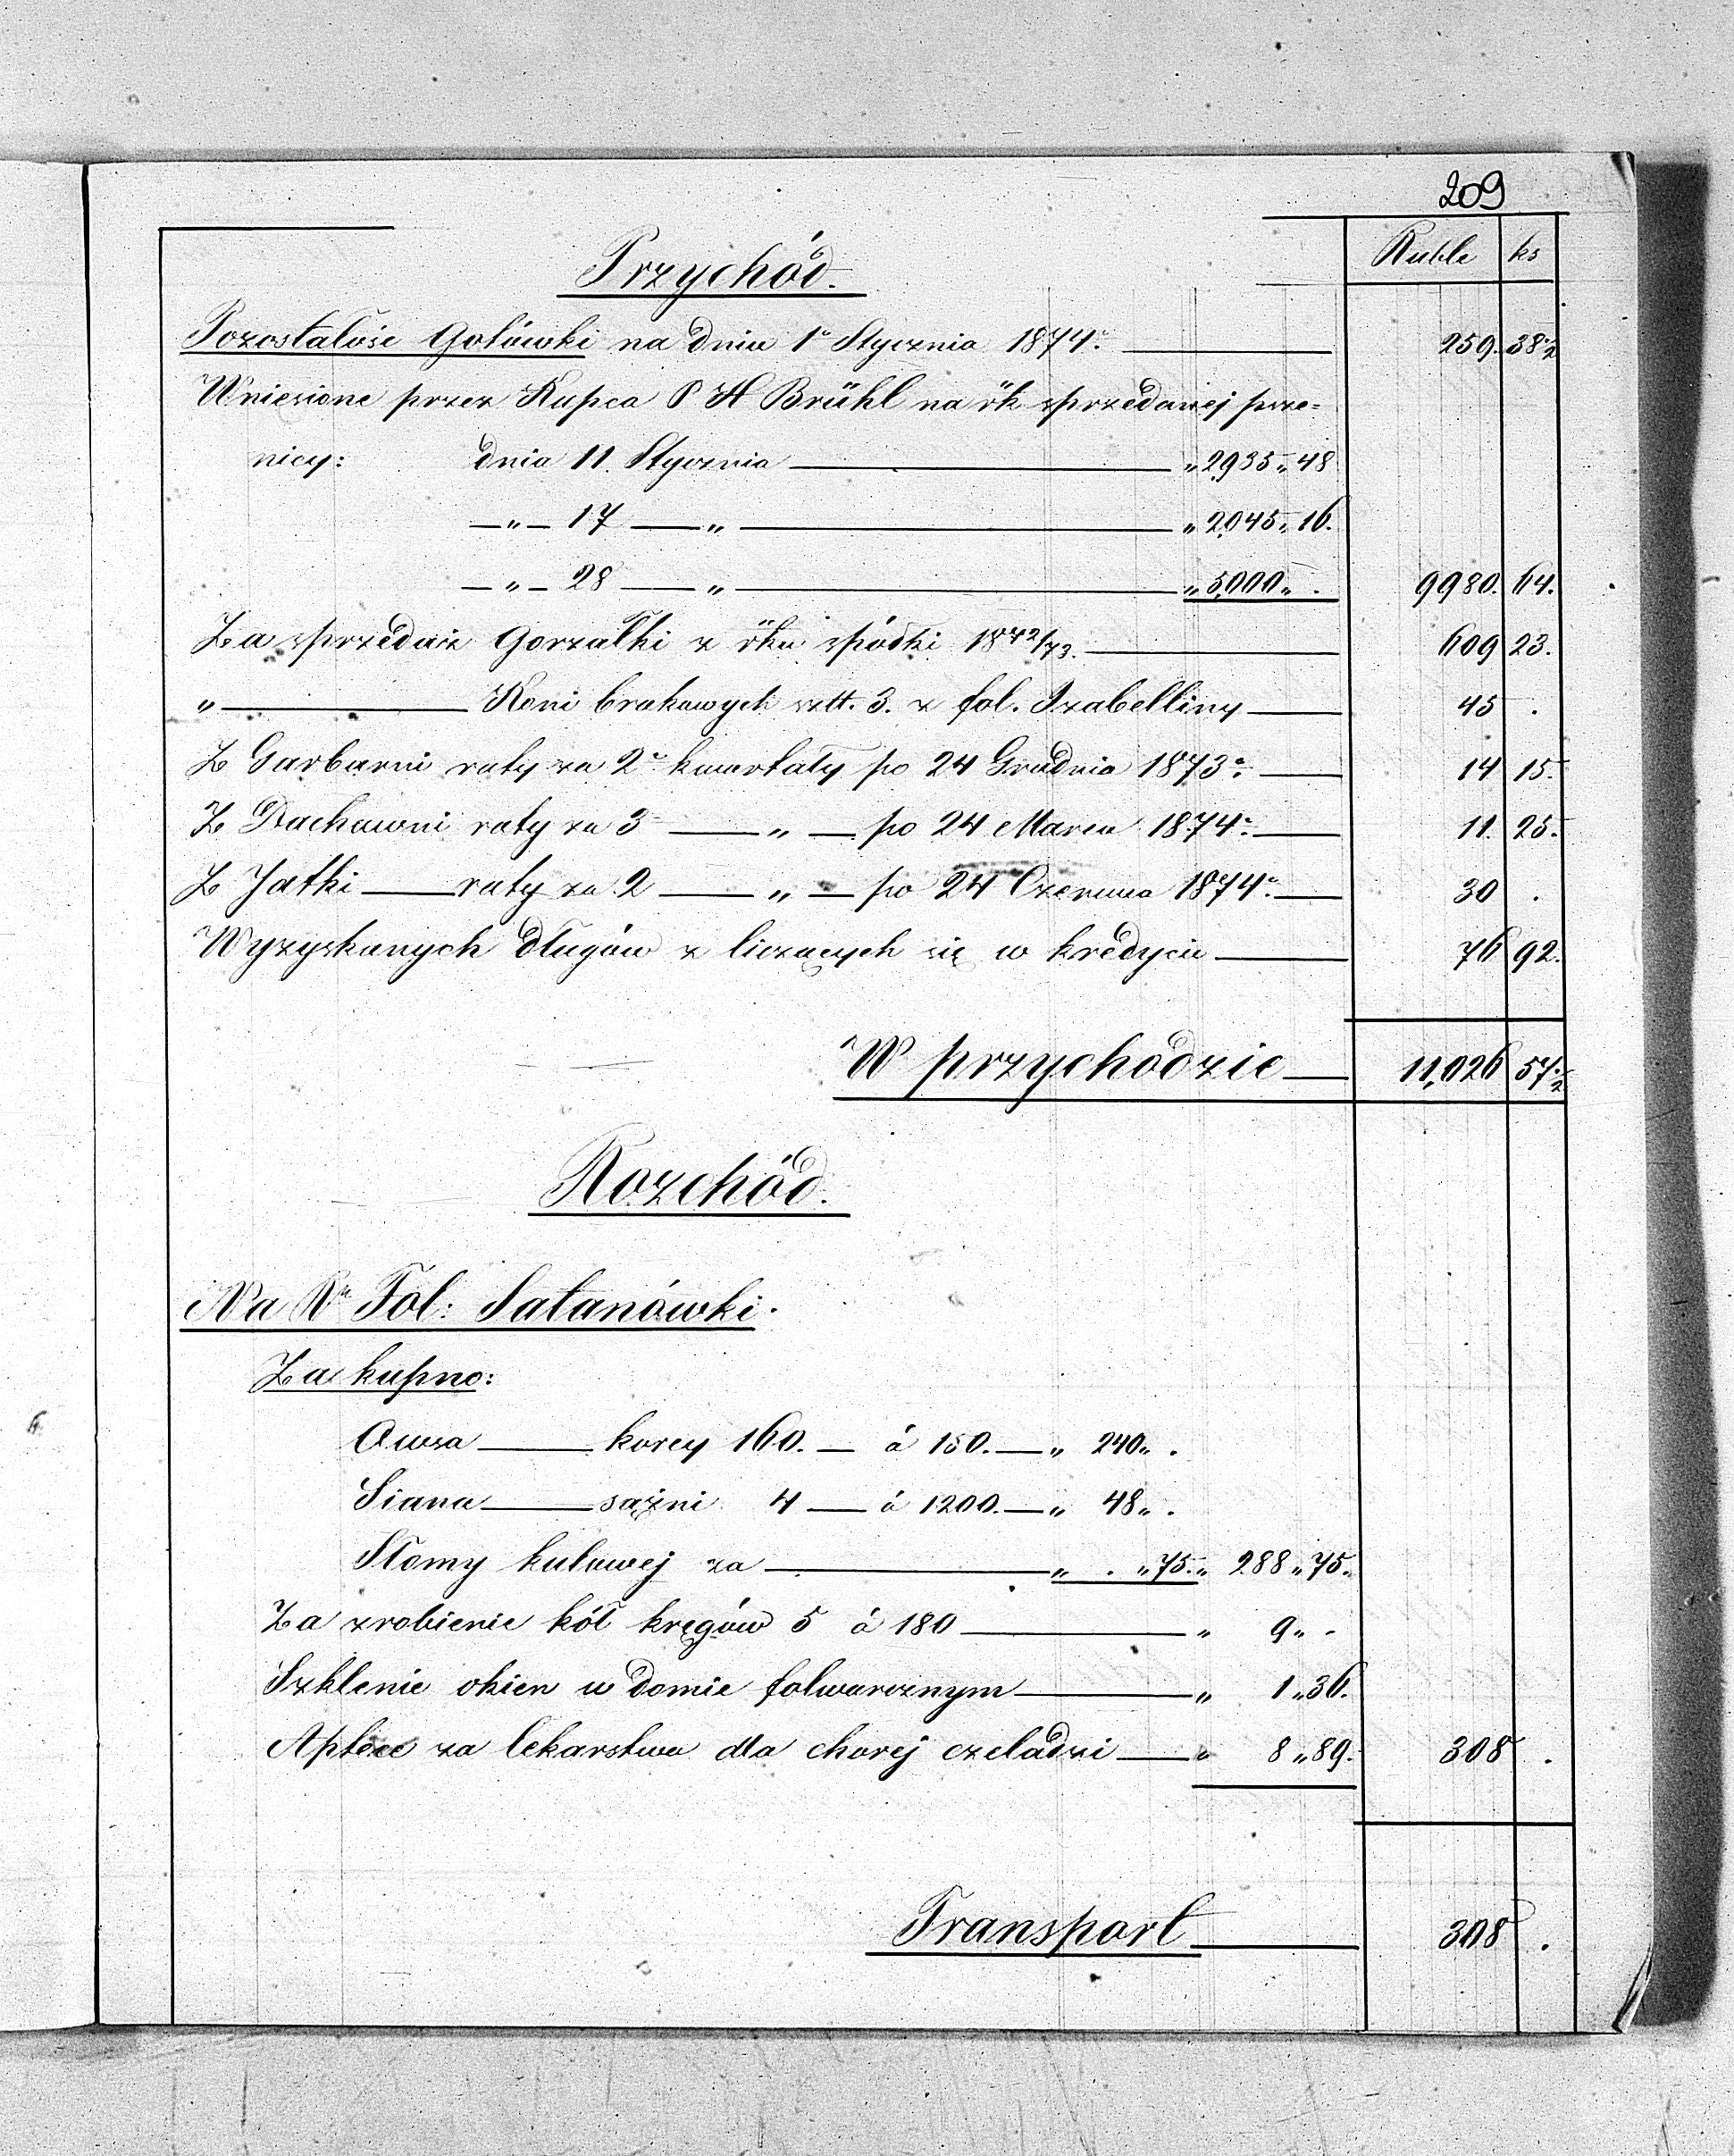 209
Przychód. Ruble ks
Pozostałość Gotówki na dniu 1o Stycznia 1874o. 259. 38 1/2
Wniesione przez Kupca P H Brühl na rk sprzedanej psze=
nicy: dnia 11. Stycznia „ 2,935 „ 48
— „ — 17 — „ — „ 2,045 „ 16.
— „ — 28 — „ — „ 5,000 „ . 9980. 64.
Za sprzedaż Gorzałki z rku spółki 1872/73. 609 23.
„ — Koni brakowych sztt. 3. z fol. Izabelliny 45 .
Z Garbarni raty za 2a kwartały po 24 Grudnia 1873o. 14 15.
Z Dachowni raty za 3 — „ — po 24 Marca 1874o. 11. 25.
Z Jatki — raty za 2 — „ — po 24 Czerwca 1874o. 30 .
Wyzyskanych długów z liczących się w kredycie 76 92.
W przychodzie 11,026 57 1/2
Rozchód.
Na Fol: Satanówki.
Za kupno:
Owsa — korcy 160. — á 150. — „ 240 „ .
Siana — sążni 4 — á 1200. — „ 48 „ .
Słomy kulowej za — „ . „ 75. „ 288 „ 75.
Za zrobienie kół kręgów 5 á 180 — „ 9 „ -
Szklenie okien w domie folwarcznym — „ 1 „ 36.
Aptece za lekarstwa dla chorej czeladzi — „ 8 „ 89. 308 .
Transport 308 .